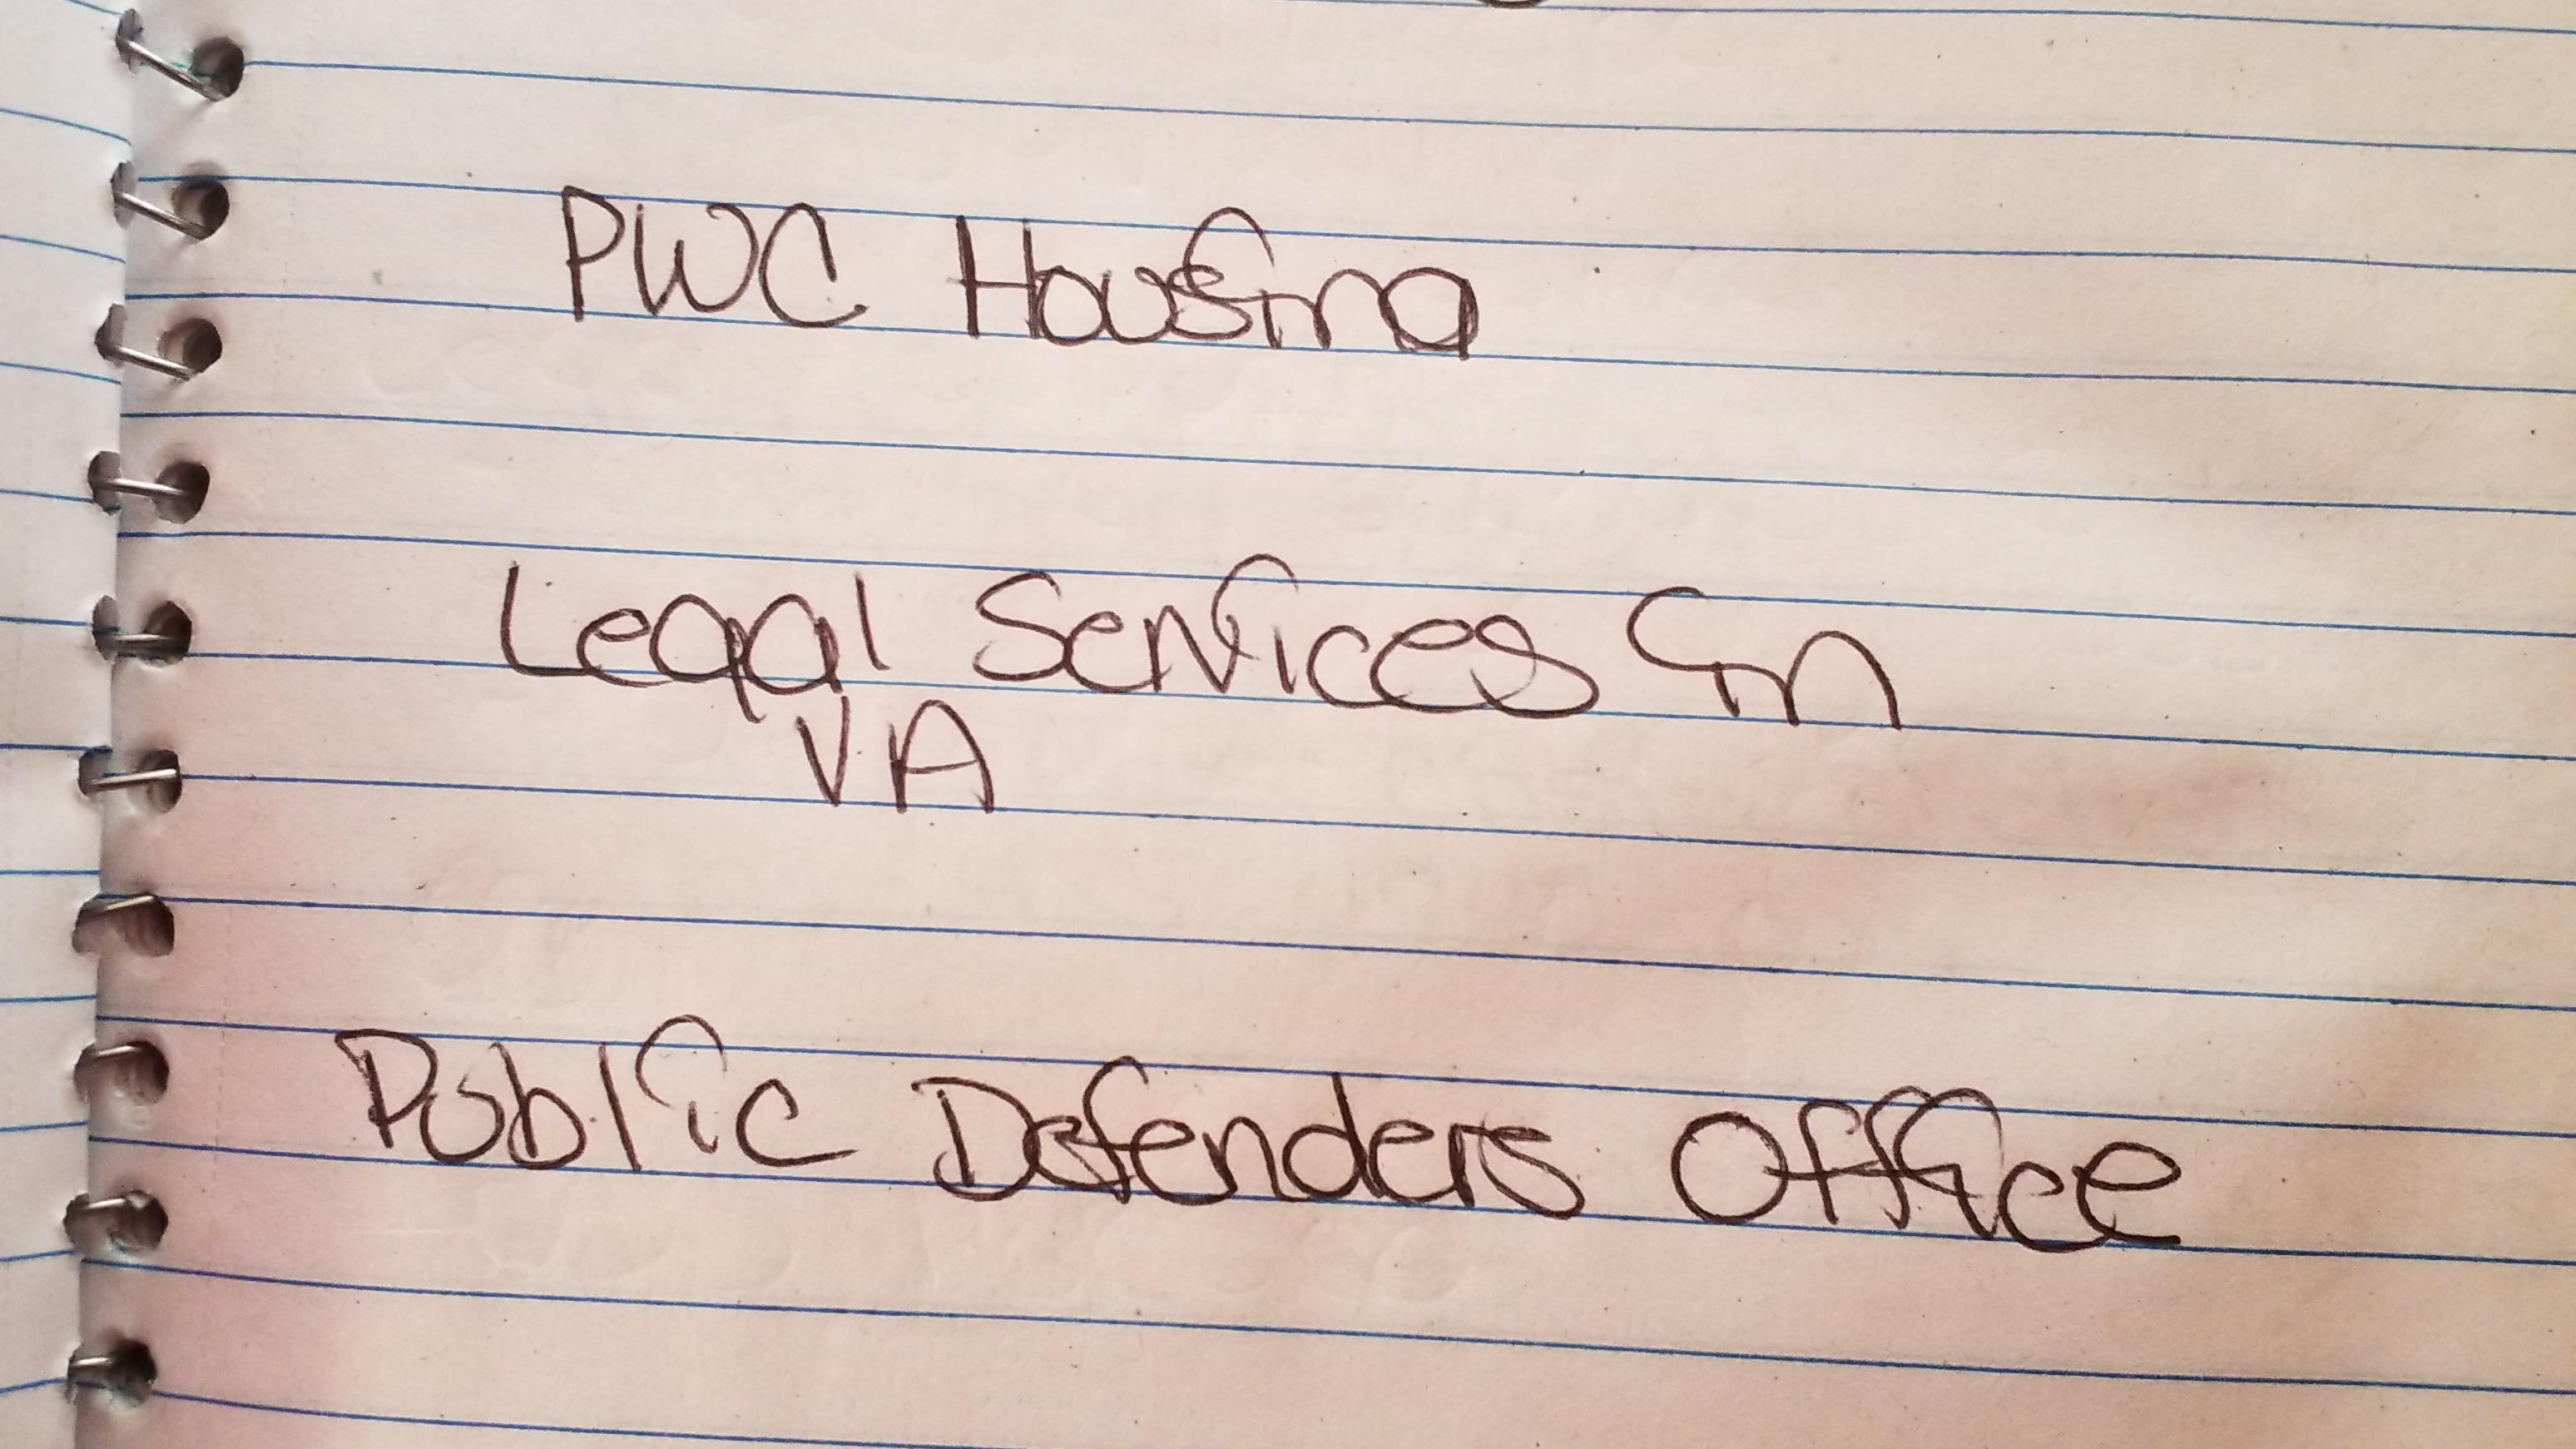 PWC Housing
Legal Services in
VA
Public Defenders Office